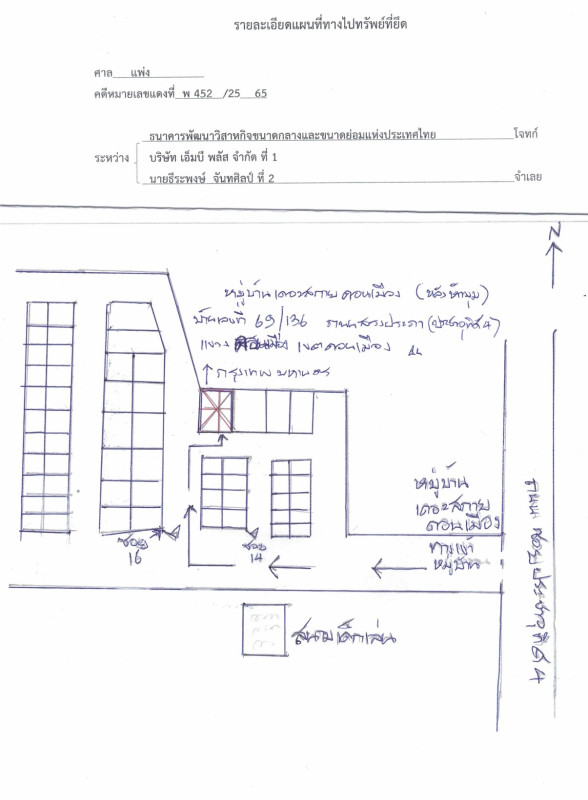 รายละเอียดแผนที่ทางไปทรัพย์ที่ยึด
ศาล แพ่ง
คดีหมายเลขแดงที่ พ 452 /25 65
ธนาคารพัฒนาวิสาหกิจขนาดกลางและขนาดย่อมแห่งประเทศไทย โจทก์
ระหว่าง บริษัท เอ็มบี พลัส จำกัด ที่ 1
นายธีระพงษ์ จันทศิลป์ ที่ 2 จำเลย
N
หมู่บ้านเดอะสกาย ดอนเมือง (หลังห้ามุม)
บ้านเลขที่ 69/136 ถนนสรงประภา (ประชาอุทิศ 4)
แขวง เขตดอนเมือง
กรุงเทพมหานคร
หมู่บ้าน
เดอะสกาย
ดอนเมือง
ทางเข้า
หมู่บ้าน
ซอย
16
ซอย
14
สนามเด็กเล่น
ถนน ซอยประชาอุทิศ 4